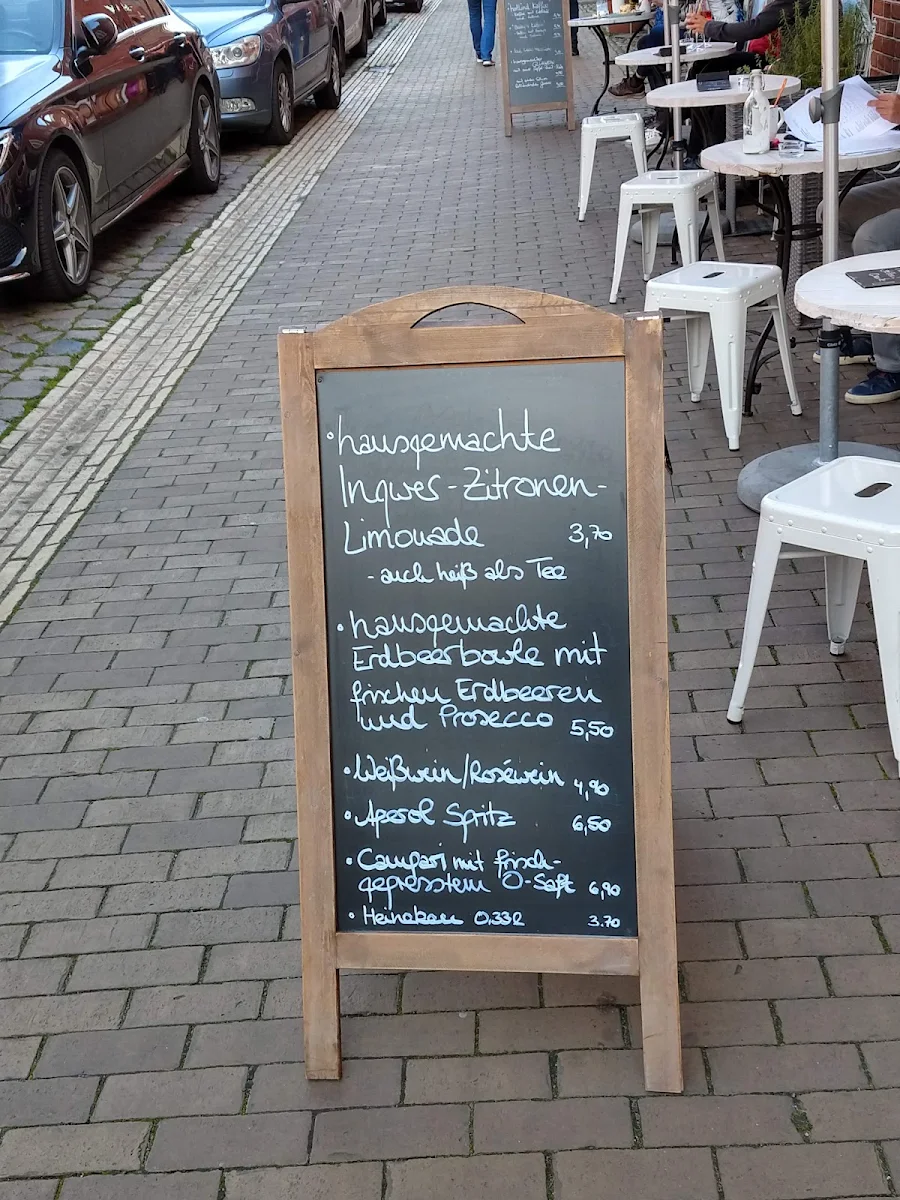 • hausgemachte
Ingwer-Zitronen-
Limonade 3,70
- auch heiß als Tee
• hausgemachte
Erdbeerbowle mit
frischen Erdbeeren
und Prosecco 5,50
• Weißwein/Roséwein 4,90
• Aperol Spritz 6,50
• Campari mit frisch-
gepresstem O-Saft 6,90
• Heineken 0,33l 3.70